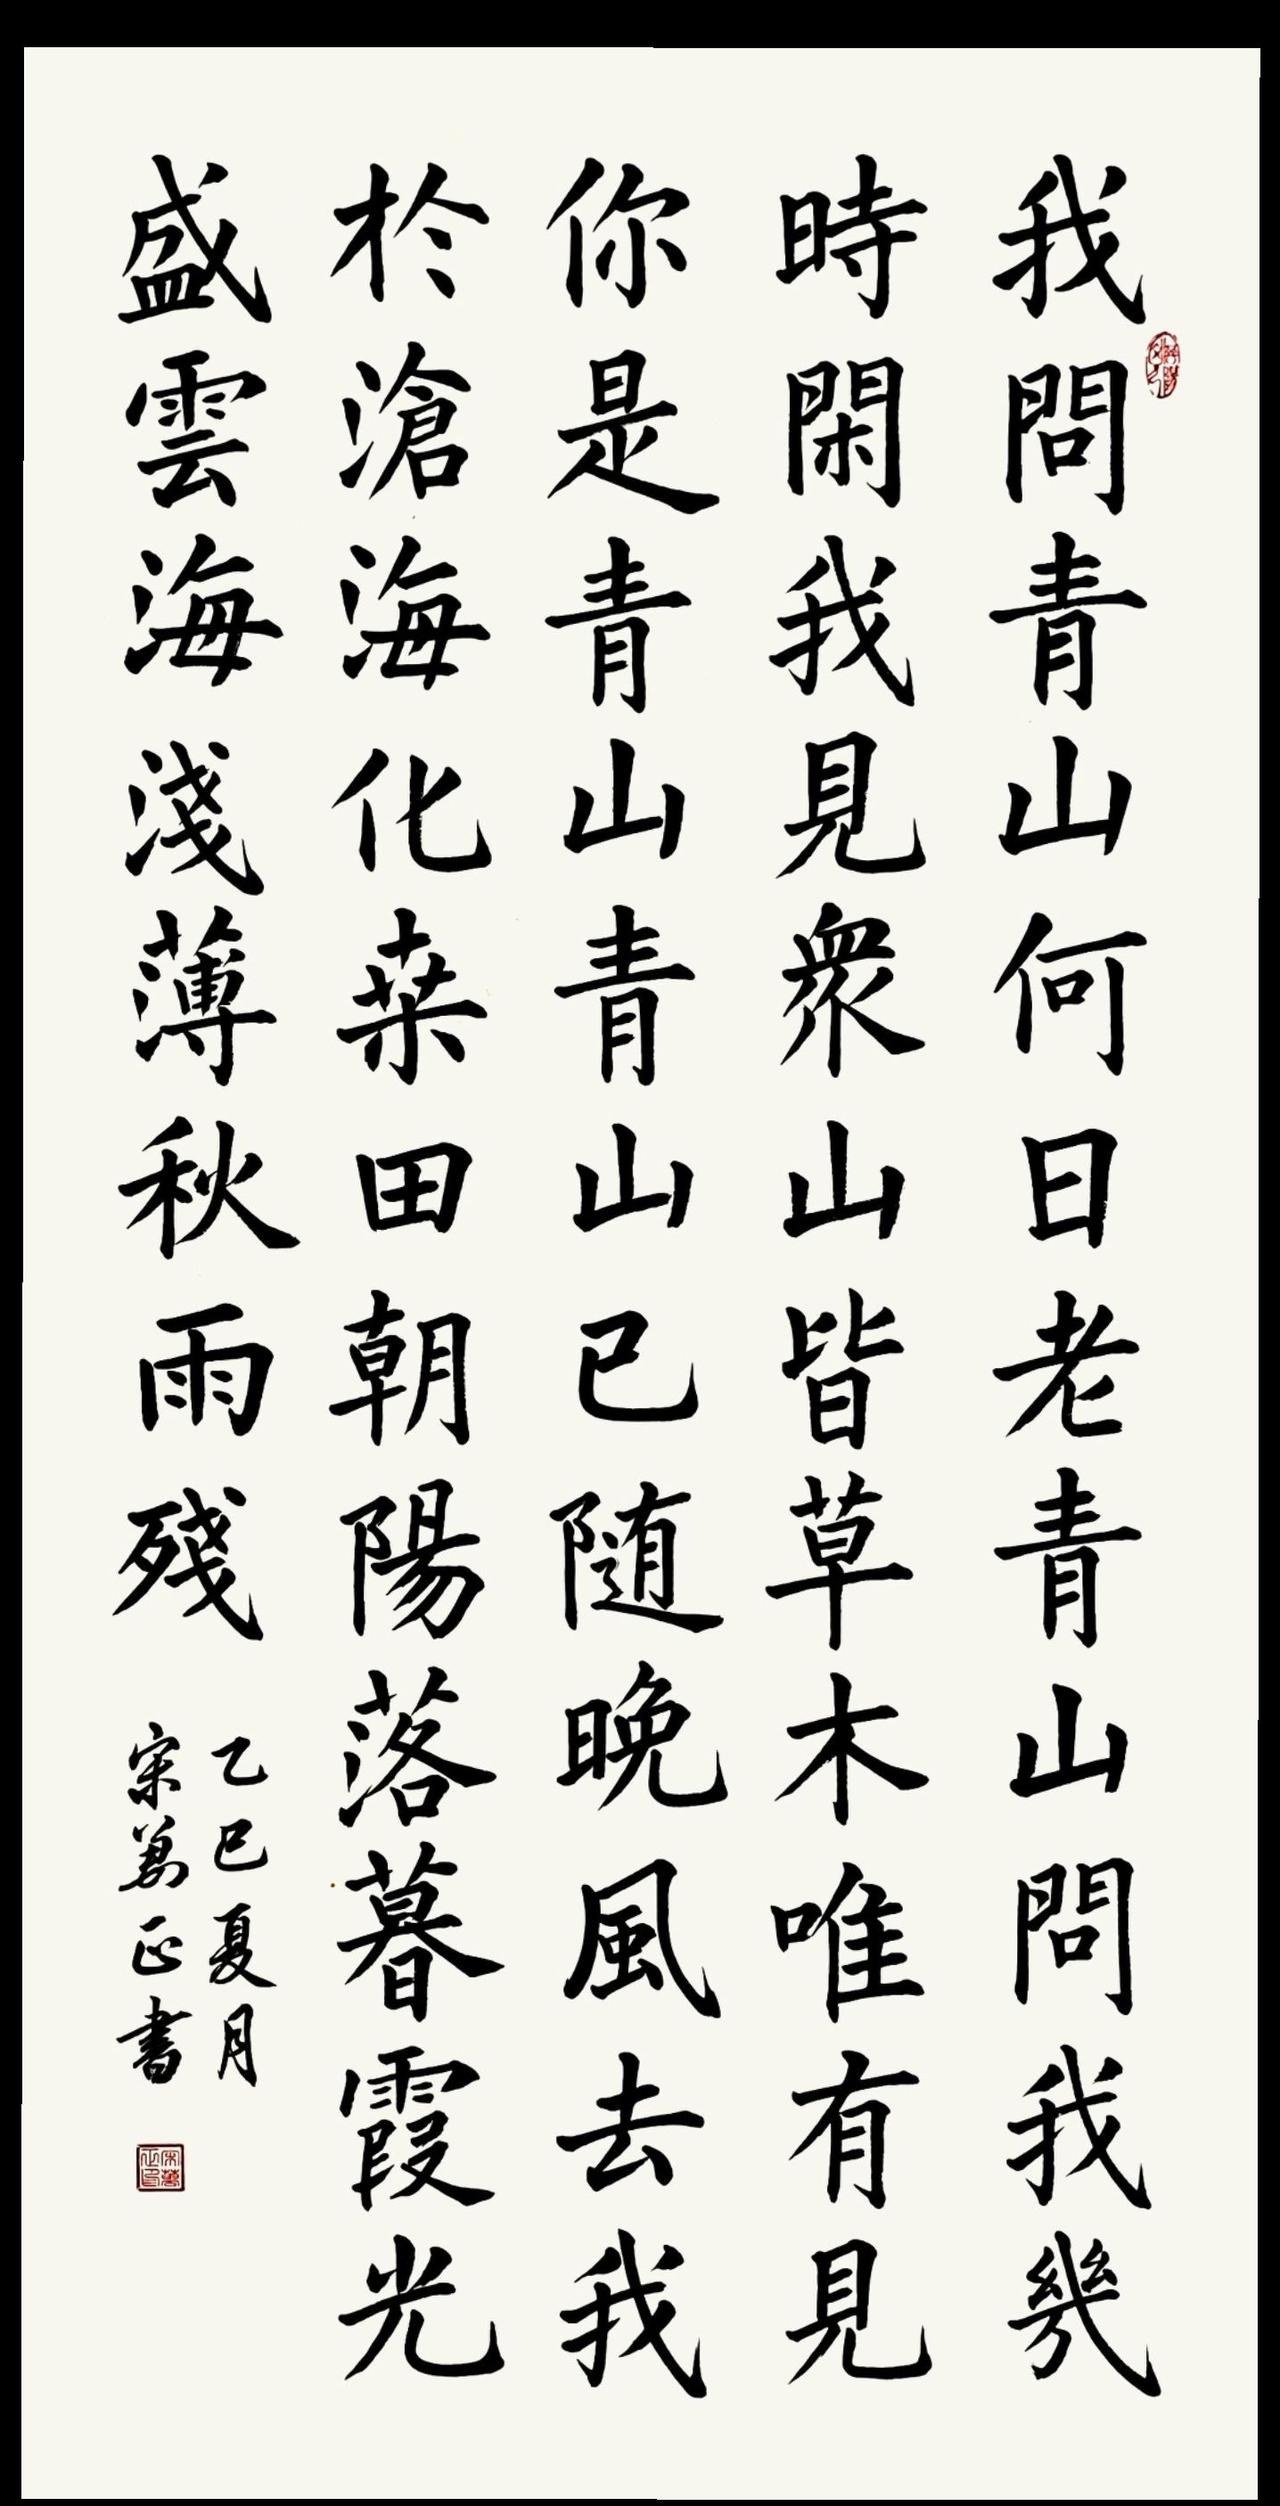 我問青山何日老青山問我幾
時閑我見衆山皆草木唯有見
你是青山青山已随晚風去我
於滄海化桑田朝陽落暮霞光
盛雲海淺薄秋雨殘
乙巳夏月
宋萬正書